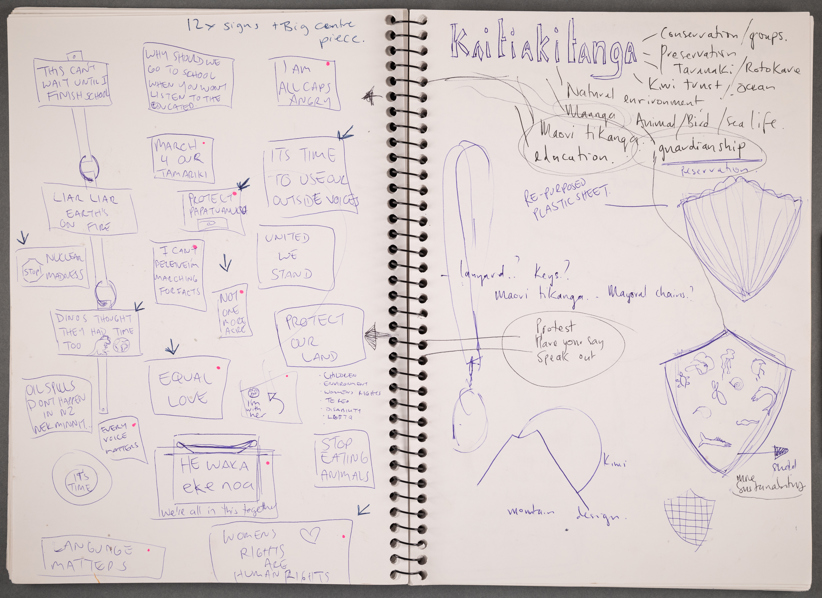 12x signs + Big centre
piece.
THIS CAN'T
WAIT UNTIL I
FINISH SCHOOL
WHY SHOULD WE
GO TO SCHOOL
WHEN YOU WONT
LISTEN TO THE
EDUCATED
I AM
ALL CAPS
ANGRY
MARCH
4 OUR
TAMARIKI
ITS TIME
TO USE OUR
OUTSIDE VOICES
LIAR LIAR
EARTH'S
ON FIRE
PROTECT
PAPATUANUKU
STOP
NUCLEAR
MADNESS
I CAN'T
MARCHING
FOR FACTS
UNITED
WE
STAND
NOT
ONE
MORE
ACRE
DINOS THOUGHT
THEY HAD TIME
TOO
PROTECT
OUR
LAND
EQUAL
LOVE
I'm
with
her
CHILDREN
ENVIRONMENT
WOMENS RIGHTS
TE REO
DISABILITY
LGBTQ
OIL SPILLS
DONT HAPPEN
IN NZ
EVERY
VOICE
MATTERS
STOP
EATING
ANIMALS
IT'S
TIME
HE WAKA
eke noa
We're all in this together
LANGUAGE
MATTERS
WOMENS
RIGHTS
ARE
HUMAN RIGHTS
Kaitiakitanga
Conservation/groups.
Preservation
Taranaki/Rotokare
Kiwi trust/ocean
Natural environment
Animal/Bird/sea life.
Maori tikanga
education.
guardianship
reservation
RE-PURPOSED
PLASTIC SHEET
lanyard..? Keys?
Maori tikanga.. Mayoral chains?
Protest
Have your say
Speak out
Kiwi
mountain design.
more
sustainability